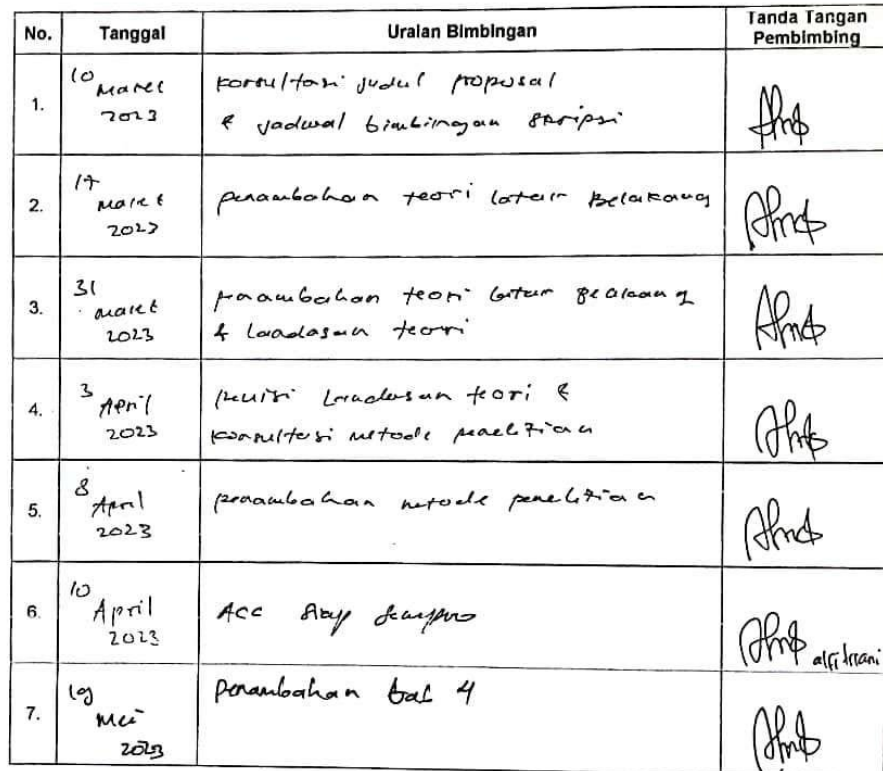 No. Tanggal Uraian Bimbingan Tanda Tangan Pembimbing
1. 10 Maret 2023 Konsultasi judul proposal
& jadwal bimbingan skripsi
2. 17 Maret 2023 penambahan teori latar Belakang
3. 31 Maret 2023 penambahan teori latar Belakang
& Landasan teori
4. 3 April 2023 Revisi Landasan teori &
konsultasi metode penelitian
5. 8 April 2023 penambahan metode penelitian
6. 10 April 2023 ACC Siap Sempro
alfitriani
7. 19 Mei 2023 Penambahan bab 4